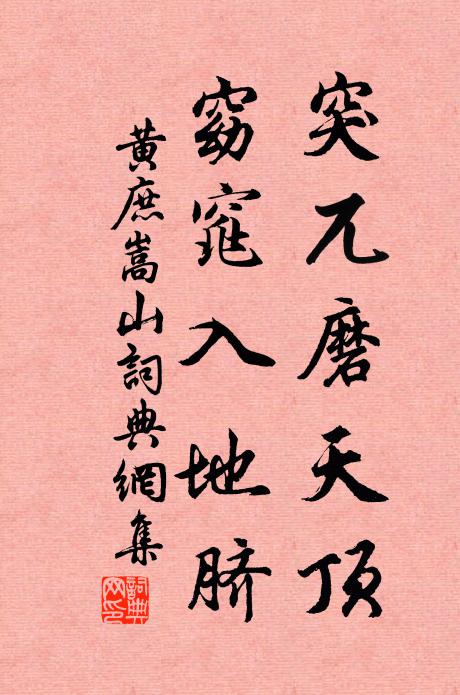 突兀磨天顶
窈窕入地脐
黄庶嵩山詞典網集
詞典网印